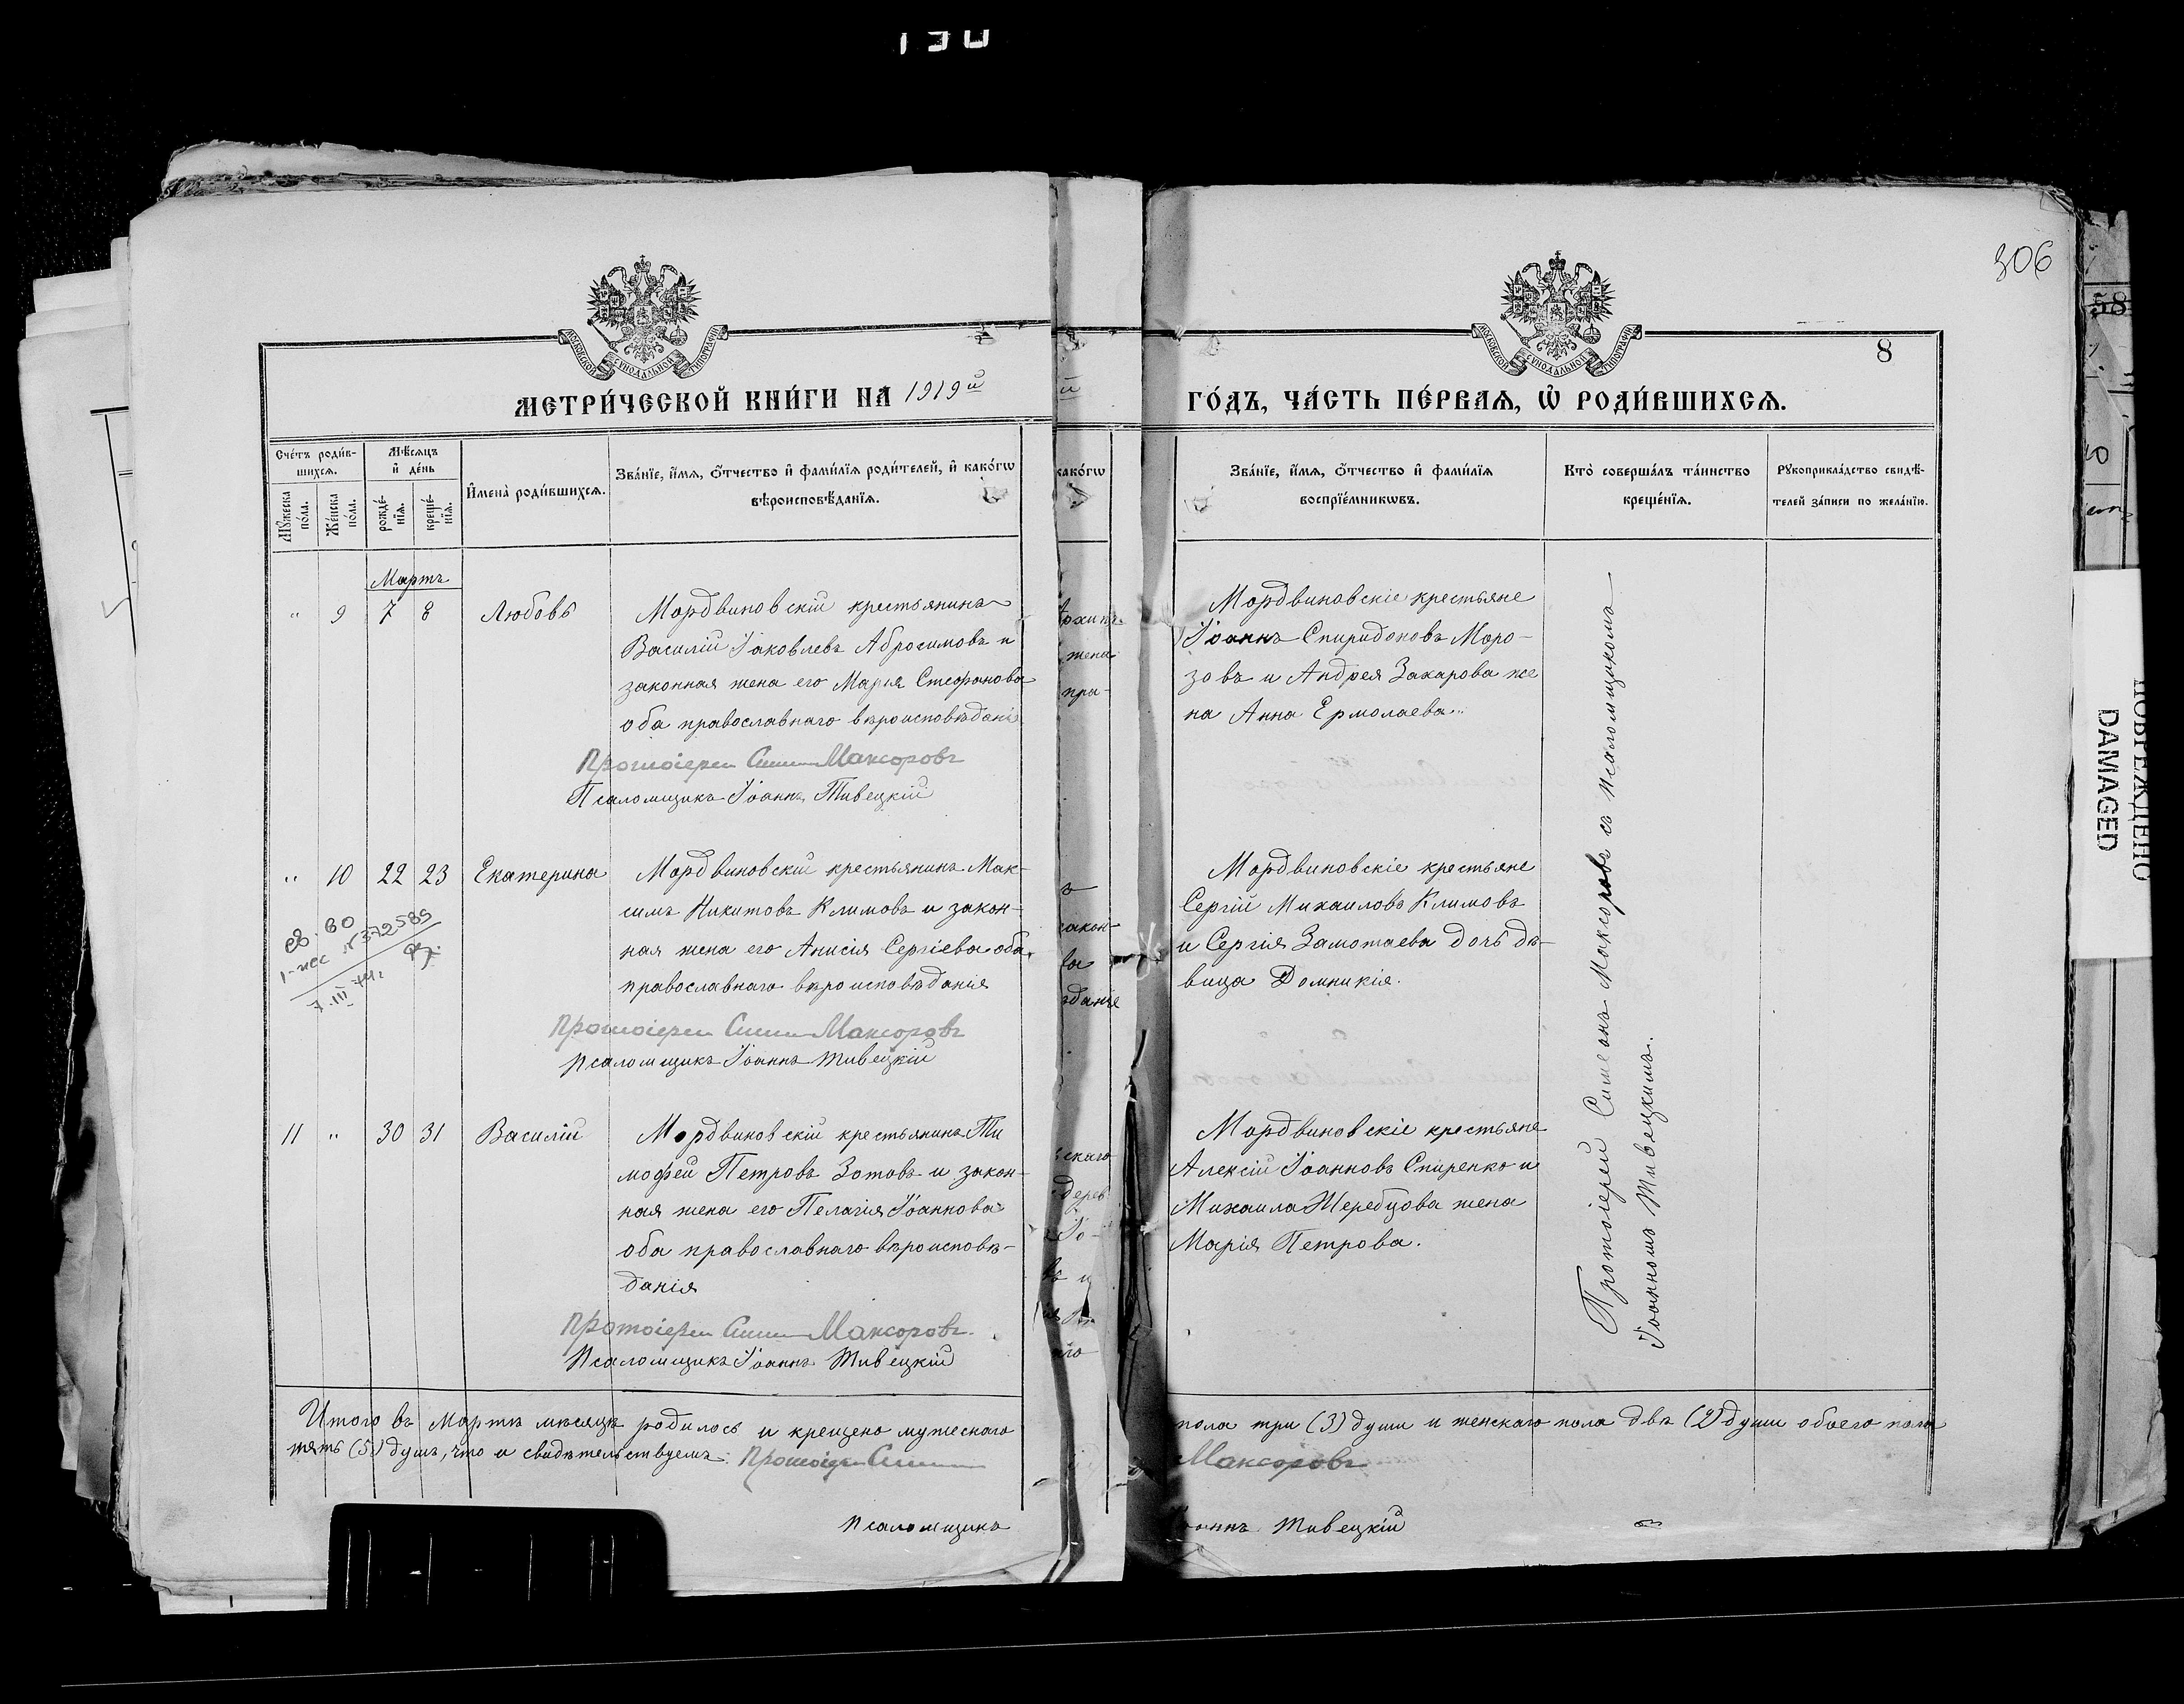 130
306
58
8
МОСКОВСКОЙ СѴНОДАЛЬНОЙ ТИПОГРАФІИ
МОСКОВСКОЙ СѴНОДАЛЬНОЙ ТИПОГРАФІИ
МЕТРИ́ЧЕСКОЙ КНИ́ГИ НА 1919й
ГО́ДЪ, ЧА́СТЬ ПЕ́РВАѦ, Ѡ҆ РОДИ́ВШИХСѦ.
Сче́тъ роди́в-
шихсѧ.
Мꙋжеска по́ла.
Же́нска по́ла.
Мѣ́сѧцъ
и҆ де́нь
рожде́-
нїѧ.
креще́-
нїѧ.
И҆мена̀ роди́вшихсѧ.
Зва́нїе, и҆́мѧ, ѻ҆́тчество и҆ фами́лїѧ роди́телей, и҆ како́гѡ
вѣроисповѣ́данїѧ.
како́гѡ
Зва́нїе, и҆́мѧ, ѻ҆́тчество и҆ фами́лїѧ
воспрїе́мникѡвъ.
Кто̀ соверша́лъ та́инство
креще́нїѧ.
Рꙋкоприкла́дство свидѣ́-
телей за́писи по жела́нїю.
Мартъ
" 9 7 8 Любовь
Мордвиновскій крестьянинъ
Василій Іаковлевъ Абросимовъ и
законная жена его Марія Стефанова
оба православнаго вѣроисповѣданія
Протоіерей Симеонъ Максоровъ
Псаломщикъ Іоаннъ Тивецкій
Мордвиновскіе крестьяне
Іоаннъ Спиридоновъ Моро-
зовъ и Андрея Захарова же
на Анна Ермолаева.
" 10 22 23 Екатерина
Мордвиновскій крестьянинъ Мак-
симъ Никитовъ Климовъ и закон-
ная жена его Анисія Сергіева оба
православнаго вѣроисповѣданія
Протоіерей Симеонъ Максоровъ
Псаломщикъ Іоаннъ Тивецкій
№ 372589
7.III
Мордвиновскіе крестьяне
Сергій Михаиловъ Климовъ
и Сергія Замотаева дочь дѣ-
вица Домникія.
11 " 30 31 Василій
Мордвиновскій крестьянинъ Ти
мофей Петровъ Зотовъ и закон-
ная жена его Пелагія Іоаннова
оба православнаго вѣроисповѣ-
данія
Протоіерей Симеонъ Максоровъ.
Псаломщикъ Іоаннъ Тивецкій
Мордвиновскіе крестьяне
Алексій Іоанновъ Спиренко и
Михаила Жеребцова жена
Марія Петрова.
жена
закон-
дерев
Протоіерей Симеонъ Максоровъ съ псаломщикомъ
Іоанномъ Тивецкимъ.
Итого въ Мартѣ мѣсяцѣ родилось и крещено мужескаго
пола три (3) души и женскаго пола двѣ (2) души обоего пола
пять (5) душъ, что и свидѣтельствуемъ: Протоіерей Симеонъ
Максоровъ
Псаломщикъ
Іоаннъ Тивецкій
ПОВРЕЖДЕНО
DAMAGED